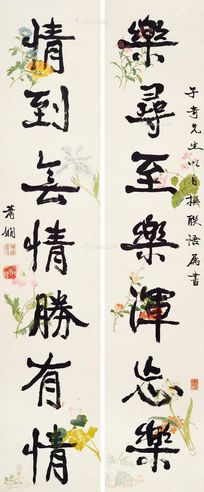 樂尋至樂渾忘樂
子奇先生以自撰聯語屬書
情到無情勝有情
蕭嫻